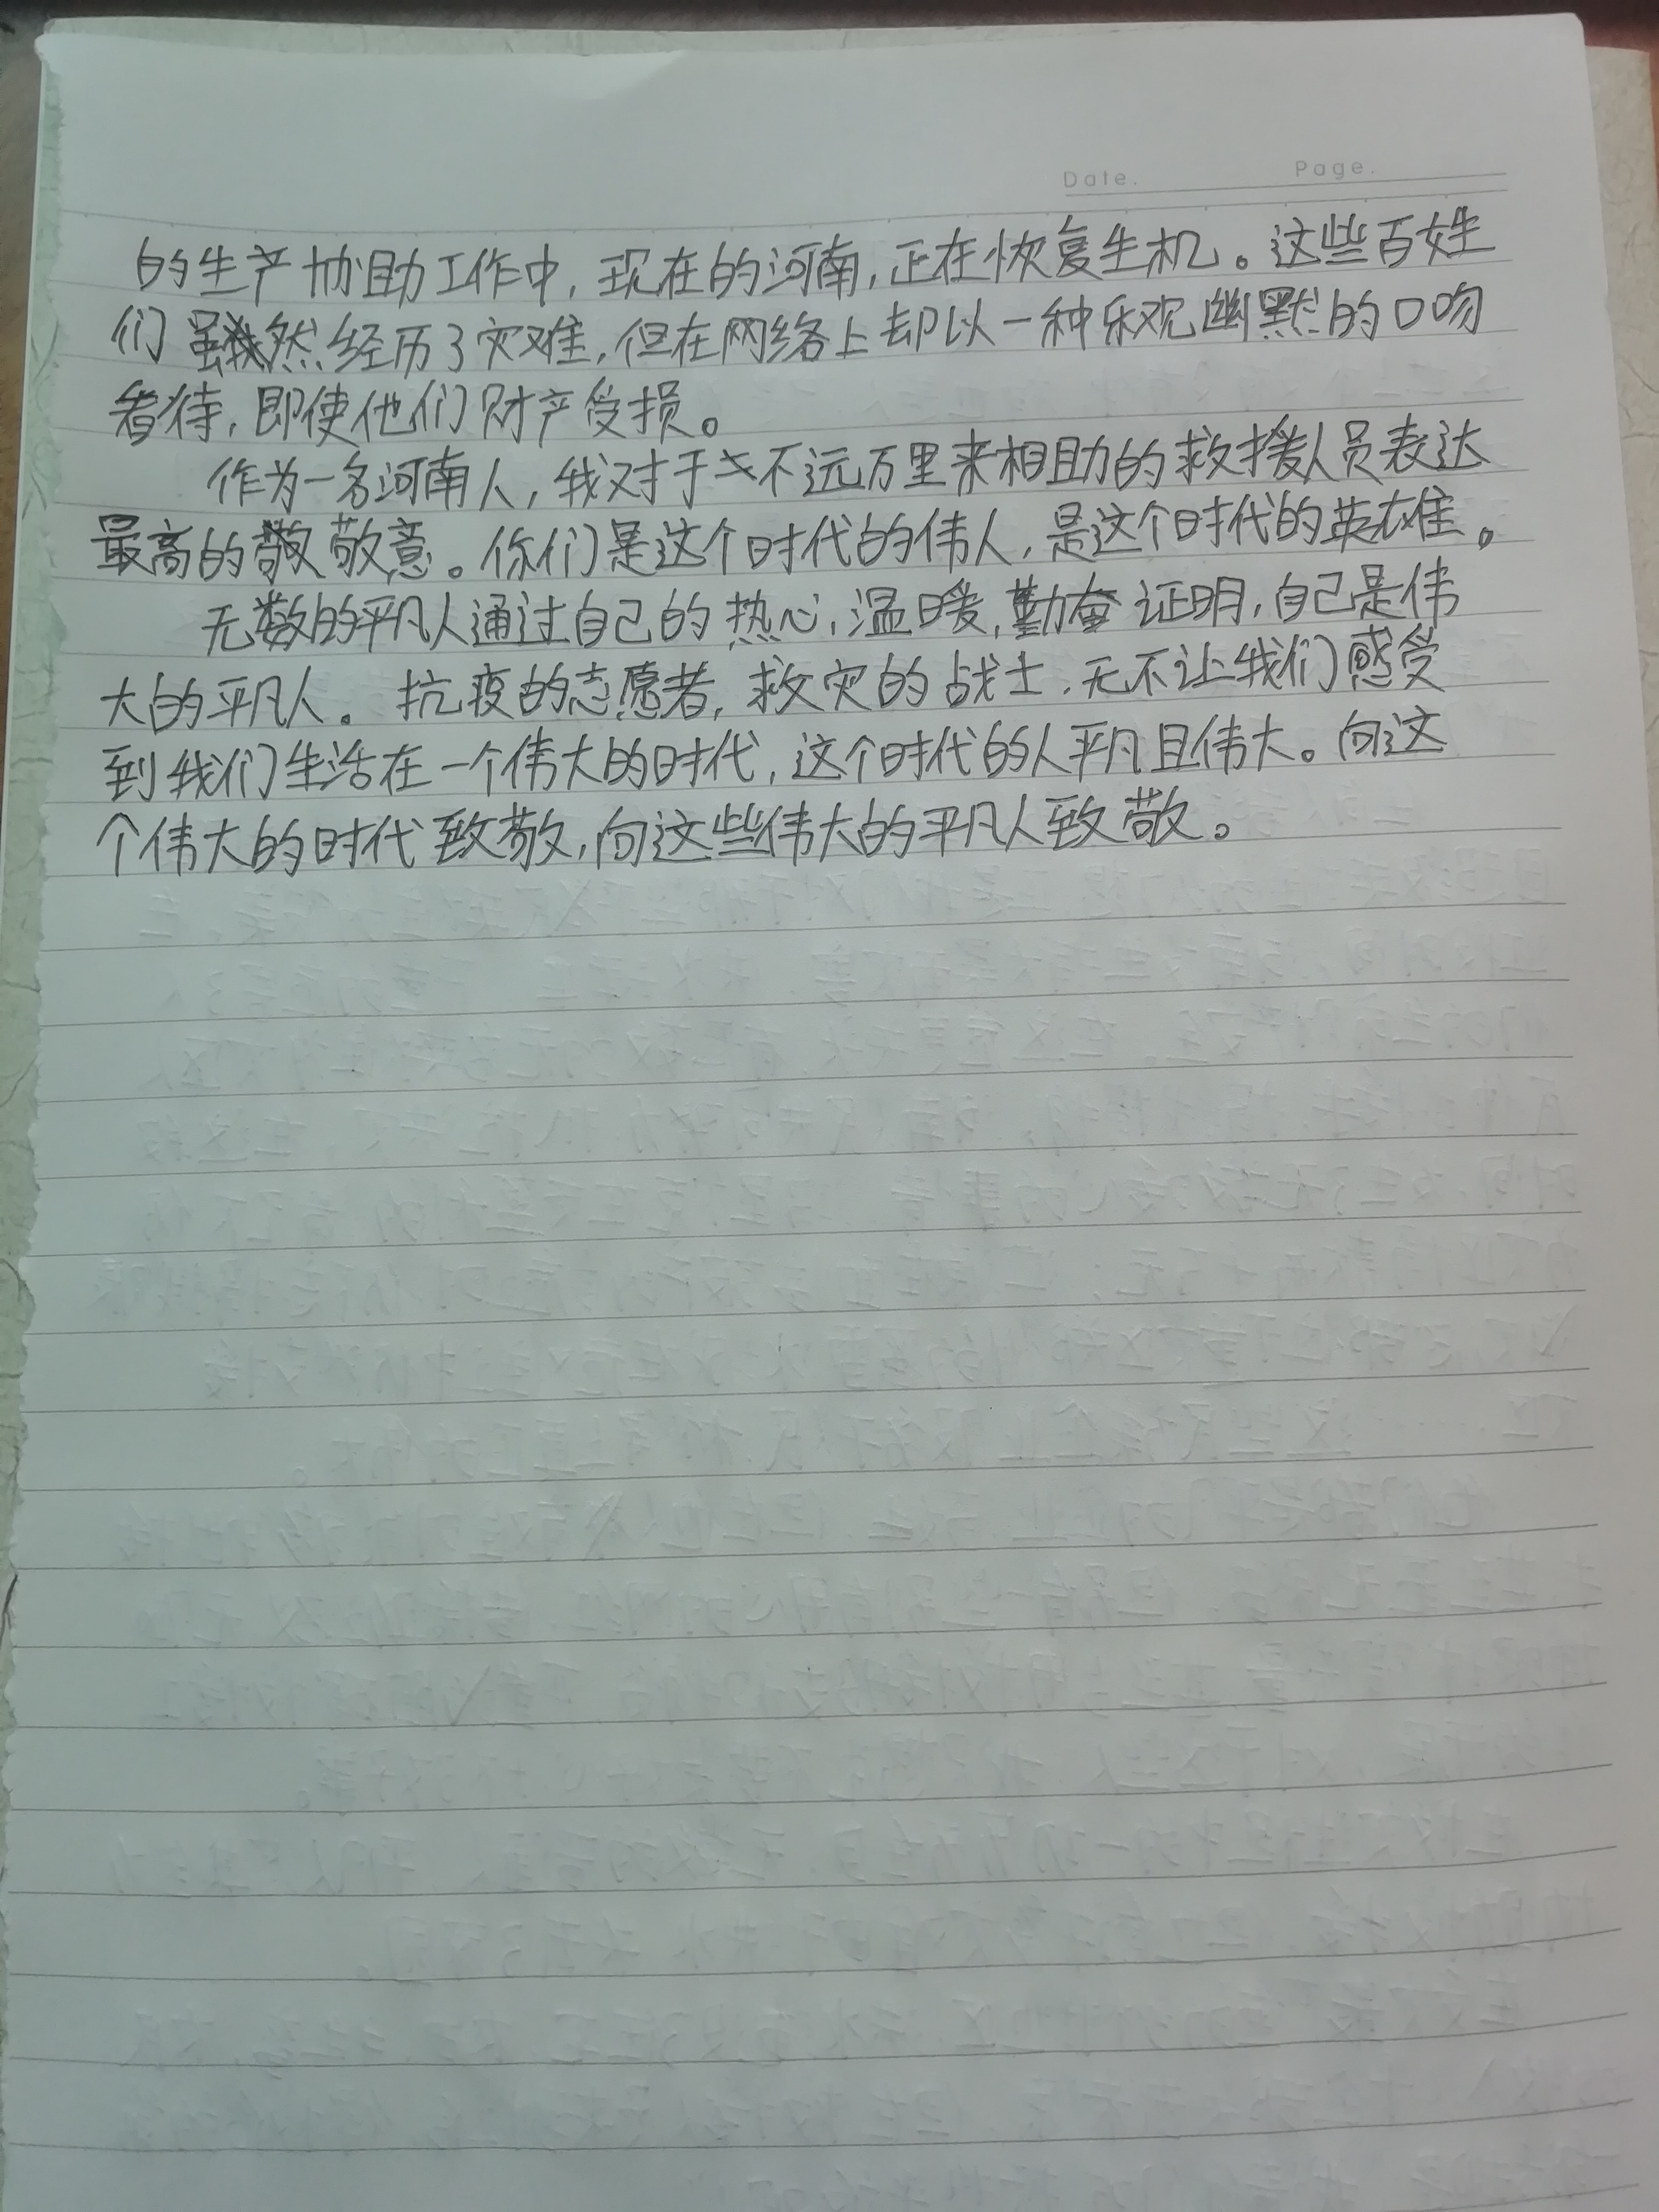 Date. Page.
的生产协助工作中,现在的河南,正在恢复生机。这些百姓
们虽然经历了灾难,但在网络上却以一种乐观幽默的口吻
看待,即使他们财产受损。
作为一名河南人,我对于不远万里来相助的救援人员表达
最高的敬意。你们是这个时代的伟人,是这个时代的英雄。
无数的平凡人通过自己的热心,温暖,勤奋证明,自己是伟
大的平凡人。抗疫的志愿者,救灾的战士,无不让我们感受
到我们生活在一个伟大的时代,这个时代的人平凡且伟大。向这
个伟大的时代致敬,向这些伟大的平凡人致敬。